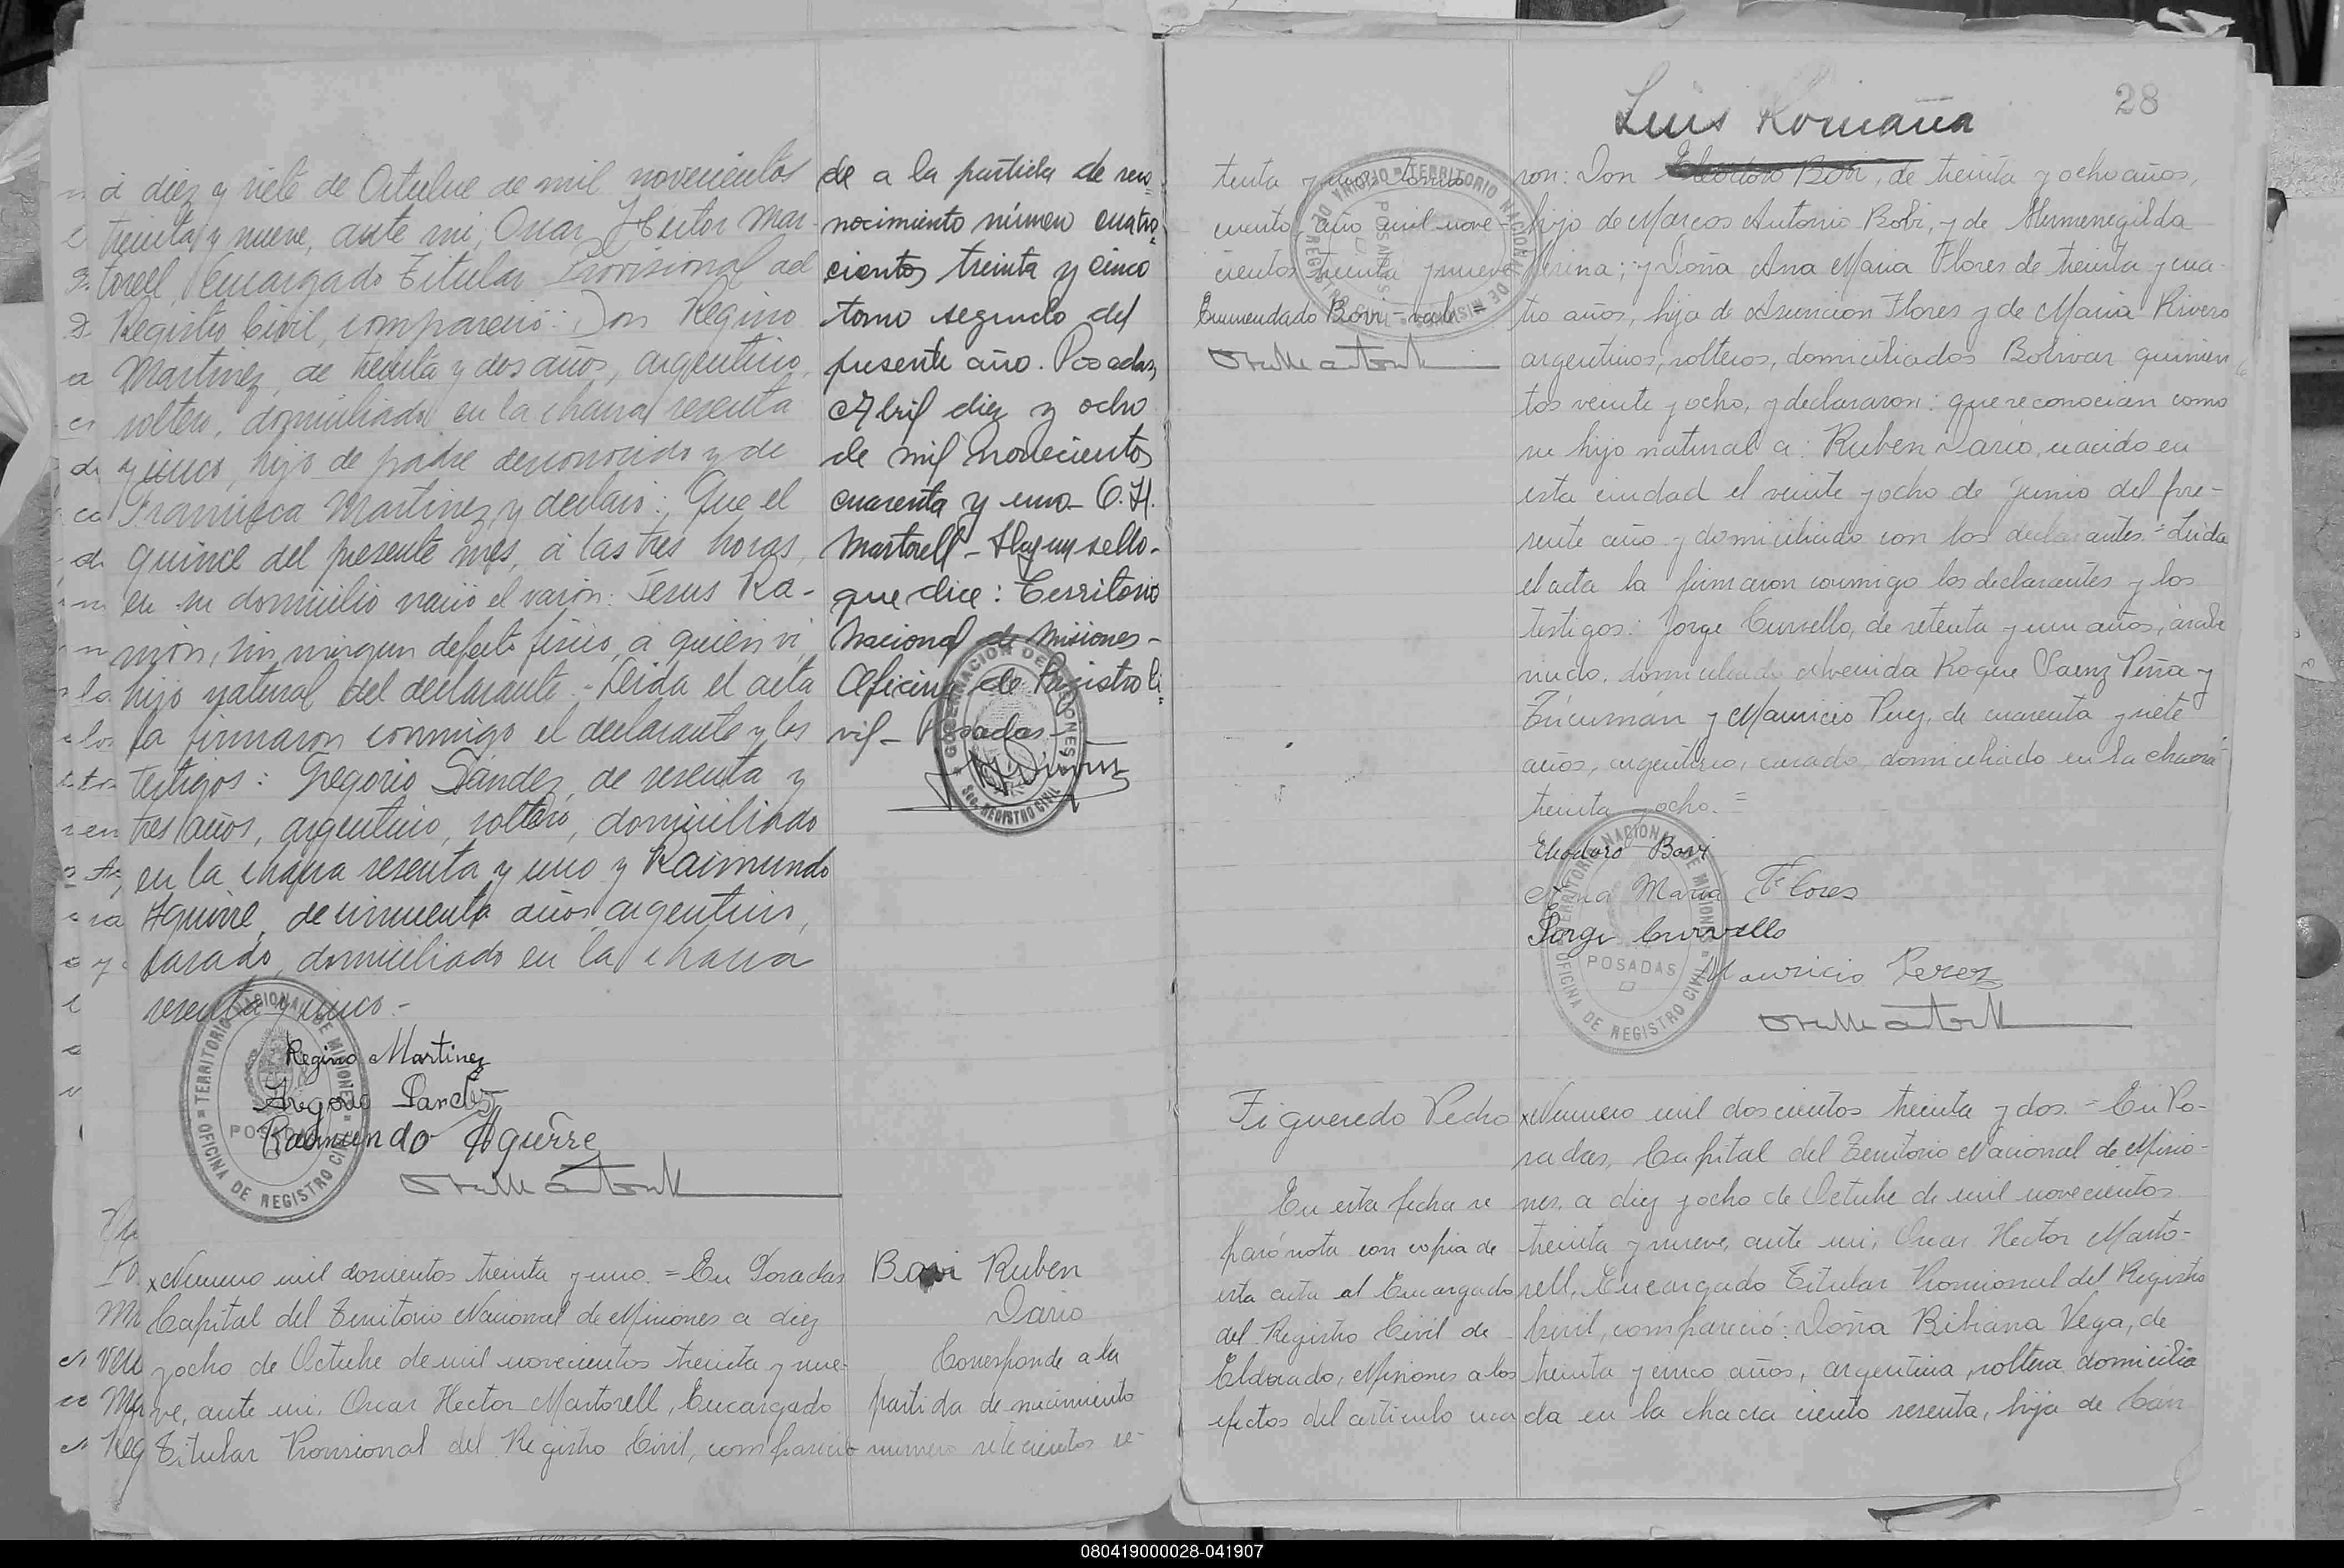 á diez y siete de Octubre de mil novecientos
treinta y nueve, ante mi, Oscar Hector Mar-
torell, Encargado Titular Provisional del
Registro Civil, compareció: Don Regino
Martinez, de treinta y dos años, argentino,
soltero, domiciliado en la chacra sesenta
y cinco, hijo de padre desconocido y de
Francisca Martinez, y declaró: Que el
quince del presente mes, á las tres horas,
en su domicilio nació el varón: Jesus Ra-
món, sin ningun defecto fisico, a quien vi,
hijo natural del declarante.- Leida el acta
la firmaron conmigo el declarante y los
testigos: Gregorio Sández, de sesenta y
tres años, argentino, soltero, domiciliado
en la chacra sesenta y uno y Raimundo
Aguirre, de cincuenta años, argentino,
casado, domiciliado en la chacra
sesenta y cinco.-
Regino Martinez
Gregorio Sandez
Raimundo Aguirre
TERRITORIO NACIONAL DE MISIONES
POSADAS
OFICINA DE REGISTRO CIVIL
de a la partida de reco-
nocimiento número cuatro-
cientos treinta y cinco
tomo segundo del
presente año. Posadas,
Abril diez y ocho
de mil novecientos
cuarenta y uno- O.H.
Martorell- Hay un sello-
que dice: Territorio
Nacional de Misiones-
Oficina de Registro Ci-
vil- Posadas-
GOBERNACION DE MISIONES
Sec. REGISTRO CIVIL
xNumero mil doscientos treinta y uno.= En Posadas
Capital del Territorio Nacional de Misiones a diez
y ocho de Octubre de mil novecientos treinta y nue-
ve, ante mi, Oscar Hector Martorell, Encargado
Titular Provisional del Registro Civil, comparecie-
Bovi Ruben
Dario
Corresponde a la
partida de nacimiento
numero setecientos se-
28
Luis Romaña
tenta y uno, tomo
cuento, año mil nove-
cientos treinta y nueve
Enmendado Bovi- vale=
TERRITORIO NACIONAL DE MISIONES
POSADAS
REGISTRO CIVIL
ron: Don Eleodoro Bovi, de treinta y ocho años,
hijo de Marcos Antonio Bobi, y de Hermenegilda
; y Doña Ana Maria Flores de treinta y cua-
tro años, hija de Asuncion Flores y de Maria Rivero
argentinos, solteros, domiciliados Bolivar quinien
tos veinte y ocho, y declararon: que reconocian como
su hijo natural a: Ruben Dario, nacido en
esta ciudad el veinte y ocho de Junio del pre-
sente año y domiciliado con los declarantes.= Leida
el acta la firmaron conmigo los declarantes y los
testigos: Jorge Curvello, de setenta y un años, árabe
viudo, domiciliado Avenida Roque Saenz Peña y
Tucumán y Mauricio Perez, de cuarenta y siete
años, argentino, casado, domiciliado en la chacra
treinta y ocho.=
Eleodoro Bovi
Ana Maria Flores
Jorge Curvello
Mauricio Perez
TERRITORIO NACIONAL DE MISIONES
POSADAS
OFICINA DE REGISTRO CIVIL
Figueredo Pedro
En esta fecha se
pasó nota con copia de
esta acta al Encargado
del Registro Civil de
Eldorado, Misiones a los
efectos del articulo
xNumero mil doscientos treinta y dos.= En Po-
sadas, Capital del Territorio Nacional de Misio-
nes, a diez y ocho de Octubre de mil novecientos
treinta y nueve, ante mi, Oscar Hector Marto-
rell, Encargado Titular Provisional del Registro
Civil, compareció: Doña Bibiana Vega, de
treinta y cinco años, argentina, soltera domicilia
da en la chacra ciento sesenta, hija de Cán
080419000028-041907